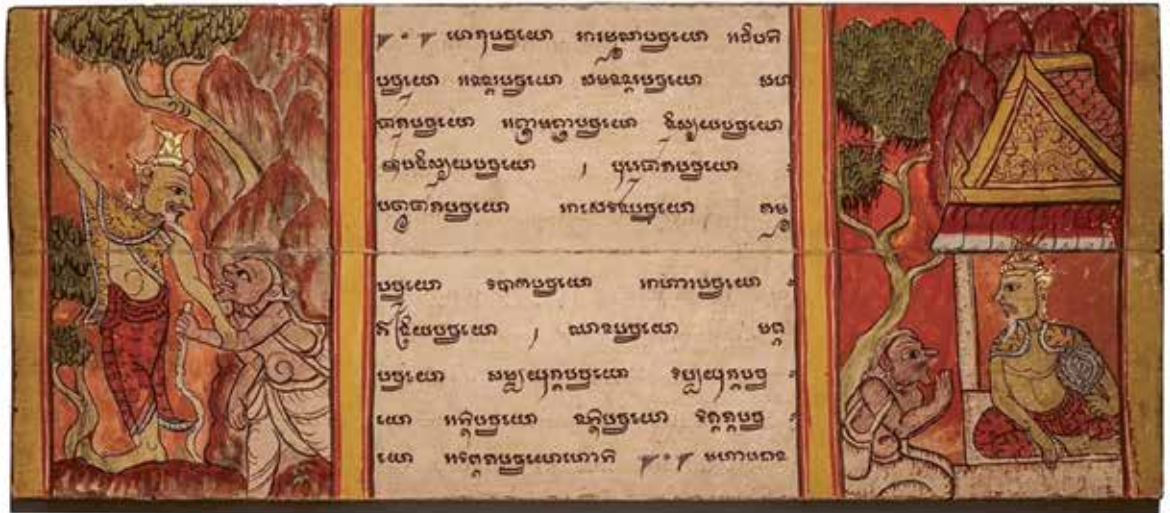 ហេតុបច្ចយោ អារម្មណបច្ចយោ អធិបតិ
បច្ចយោ អនន្តរបច្ចយោ សមនន្តរបច្ចយោ សហ
ជាតបច្ចយោ អញ្ញមញ្ញបច្ចយោ និស្សយបច្ចយោ
ឧបនិស្សយបច្ចយោ , បុរេជាតបច្ចយោ
បច្ឆាជាតបច្ចយោ អាសេវនបច្ចយោ កម្ម
បច្ចយោ វិបាកបច្ចយោ អាហារបច្ចយោ
ឥន្ទ្រិយបច្ចយោ , ឈានបច្ចយោ មគ្គ
បច្ចយោ សម្បយុត្តបច្ចយោ វិប្បយុត្តបច្ច
យោ អត្ថិបច្ចយោ នត្ថិបច្ចយោ វិគតបច្ច
យោ អវិគតបច្ចយោហោតិ